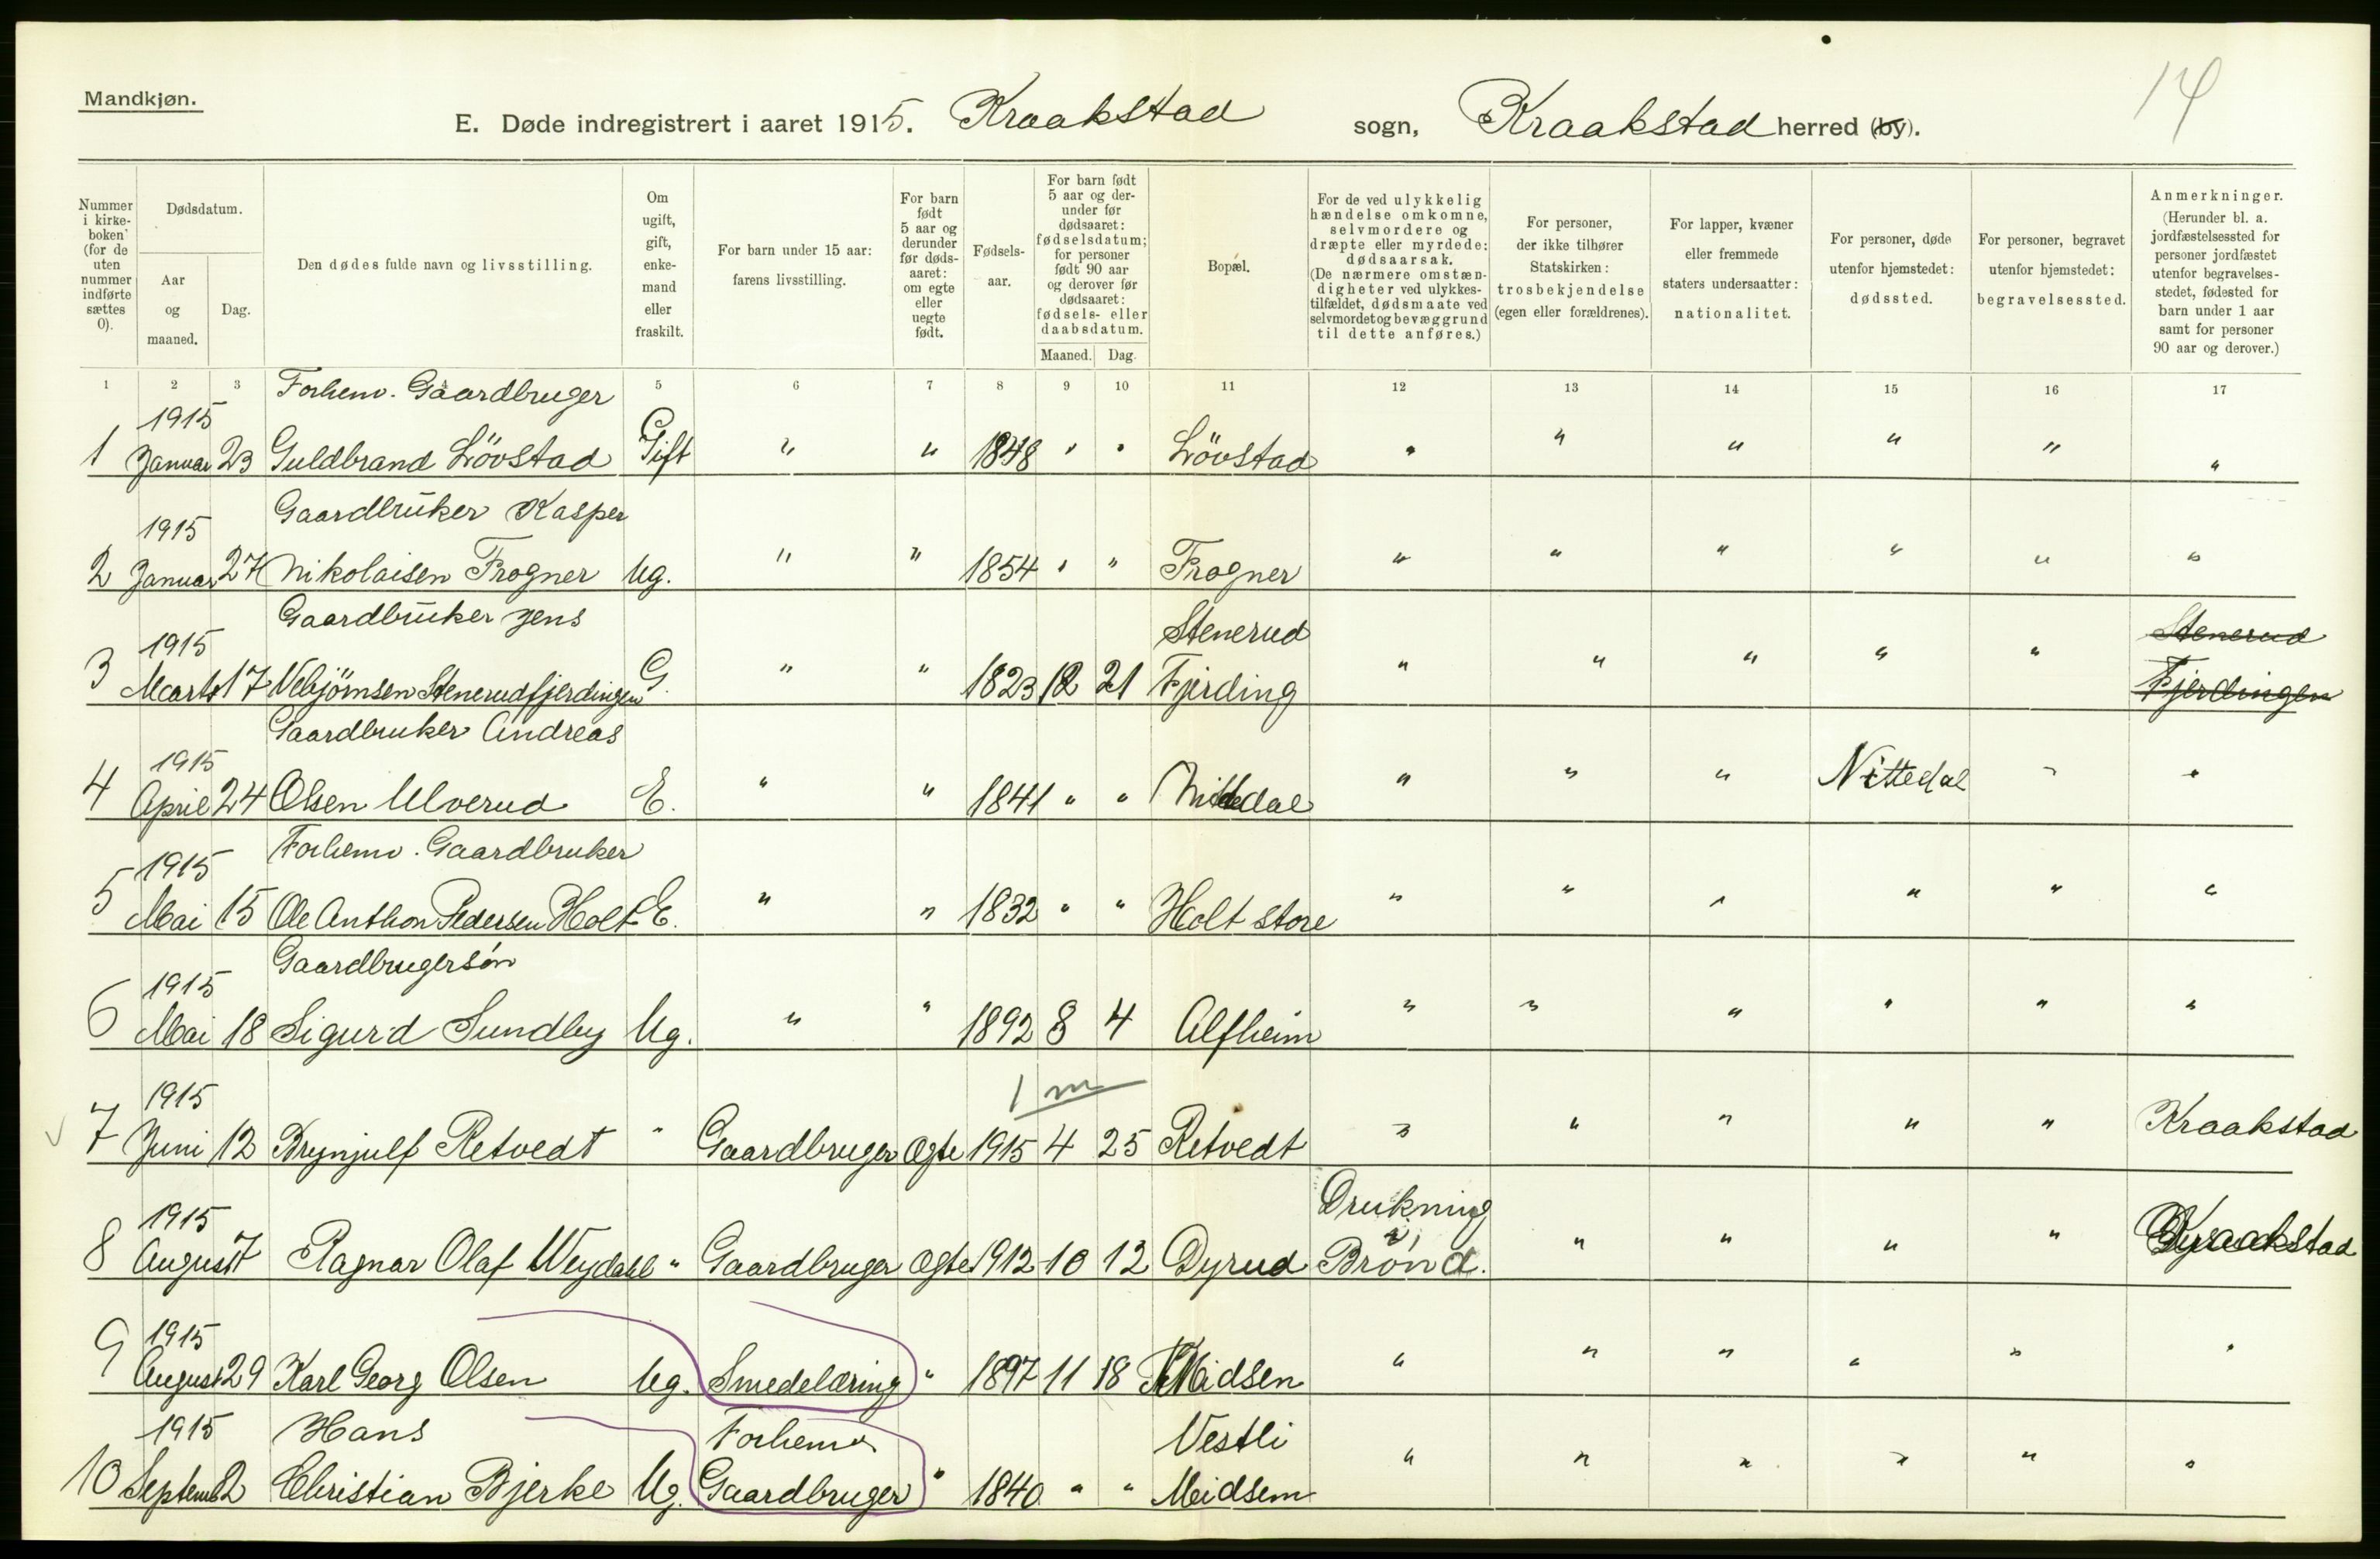 Mandkjøn.
14
E. Døde indregistrert i aaret 1915. Kraakstad sogn, Kraakstad herred (by).
Nummer i kirke- boken (for de uten nummer indførte sættes 0).
Dødsdatum.
Aar og maaned.
Dag.
Den dødes fulde navn og livsstilling.
Om ugift, gift, enke- mand eller fraskilt.
For barn under 15 aar: farens livsstilling.
For barn født 5 aar og derunder før døds- aaret: om egte eller uegte født.
Fødsels- aar.
For barn født 5 aar og der- under før dødsaaret: fødselsdatum; for personer født 90 aar og derover før dødsaaret: fødsels- eller daabsdatum.
Maaned. Dag.
Bopæl.
For de ved ulykkelig hændelse omkomne, selvmordere og dræpte eller myrdede: dødsaarsak. (De nærmere omstæn- digheter ved ulykkes- tilfældet, dødsmaate ved selvmord og bevæggrund til dette anføres.)
For personer, der ikke tilhører Statskirken: trosbekjendelse (egen eller forældrenes).
For lapper, kvæner eller fremmede staters undersaatter: nationalitet.
For personer, døde utenfor hjemstedet: dødssted.
For personer, begravet utenfor hjemstedet: begravelsessted.
Anmerkninger. (Herunder bl. a. jordfæstelsessted for personer jordfæstet utenfor begravelses- stedet, fødested for barn under 1 aar samt for personer 90 aar og derover.)
1 2 3 4 5 6 7 8 9 10 11 12 13 14 15 16 17
Forhenv. Gaardbruger
1915
1 Januar 23 Guldbrand Lövstad Gift " " 1848 " " Lövstad " " " " " "
Gaardbruker Kasper
1915
2 Januar 27 Nikolaisen Frogner Ug. " " 1854 " " Frogner " " " " " "
Gaardbruker Jens Stenerud Stenerud
1915
3 Marts 17 Vebjörnsen Stenerudfjerdingen G. " " 1823 12 21 Fjerding " " " " " Fjerdingen
Gaardbruker Andreas
1915
4 April 24 Olsen Ulverud E. " " 1841 " " Nittedal " " " Nittedal " "
Forhenv. Gaardbruker
1915
5 Mai 15 Ole Anthon Pedersen Holt E. " " 1832 " " Holt store " " " " " "
Gaardbrugersön
1915
6 Mai 18 Sigurd Sundby Ug. " " 1892 8 4 Alfheim " " " " " "
1 m
1915
7 Juni 12 Brynjulf Retvedt " Gaardbruger Ægte 1915 4 25 Retvedt " " " " " Kraakstad
Drukning
1915 i
8 August 7 Ragnar Olaf Weydahl " Gaardbruger Ægte 1912 10 12 Dyrud Brönd. " " " " Kraakstad
1915
9 August 29 Karl Georg Olsen Ug. Smedelæring " 1897 11 18 Midsen " " " " " "
1915 Hans Forhenv. Vestli
10 Septemb 2 Christian Bjerke Ug. Gaardbruger " 1840 " " Meidsem " " " " " "